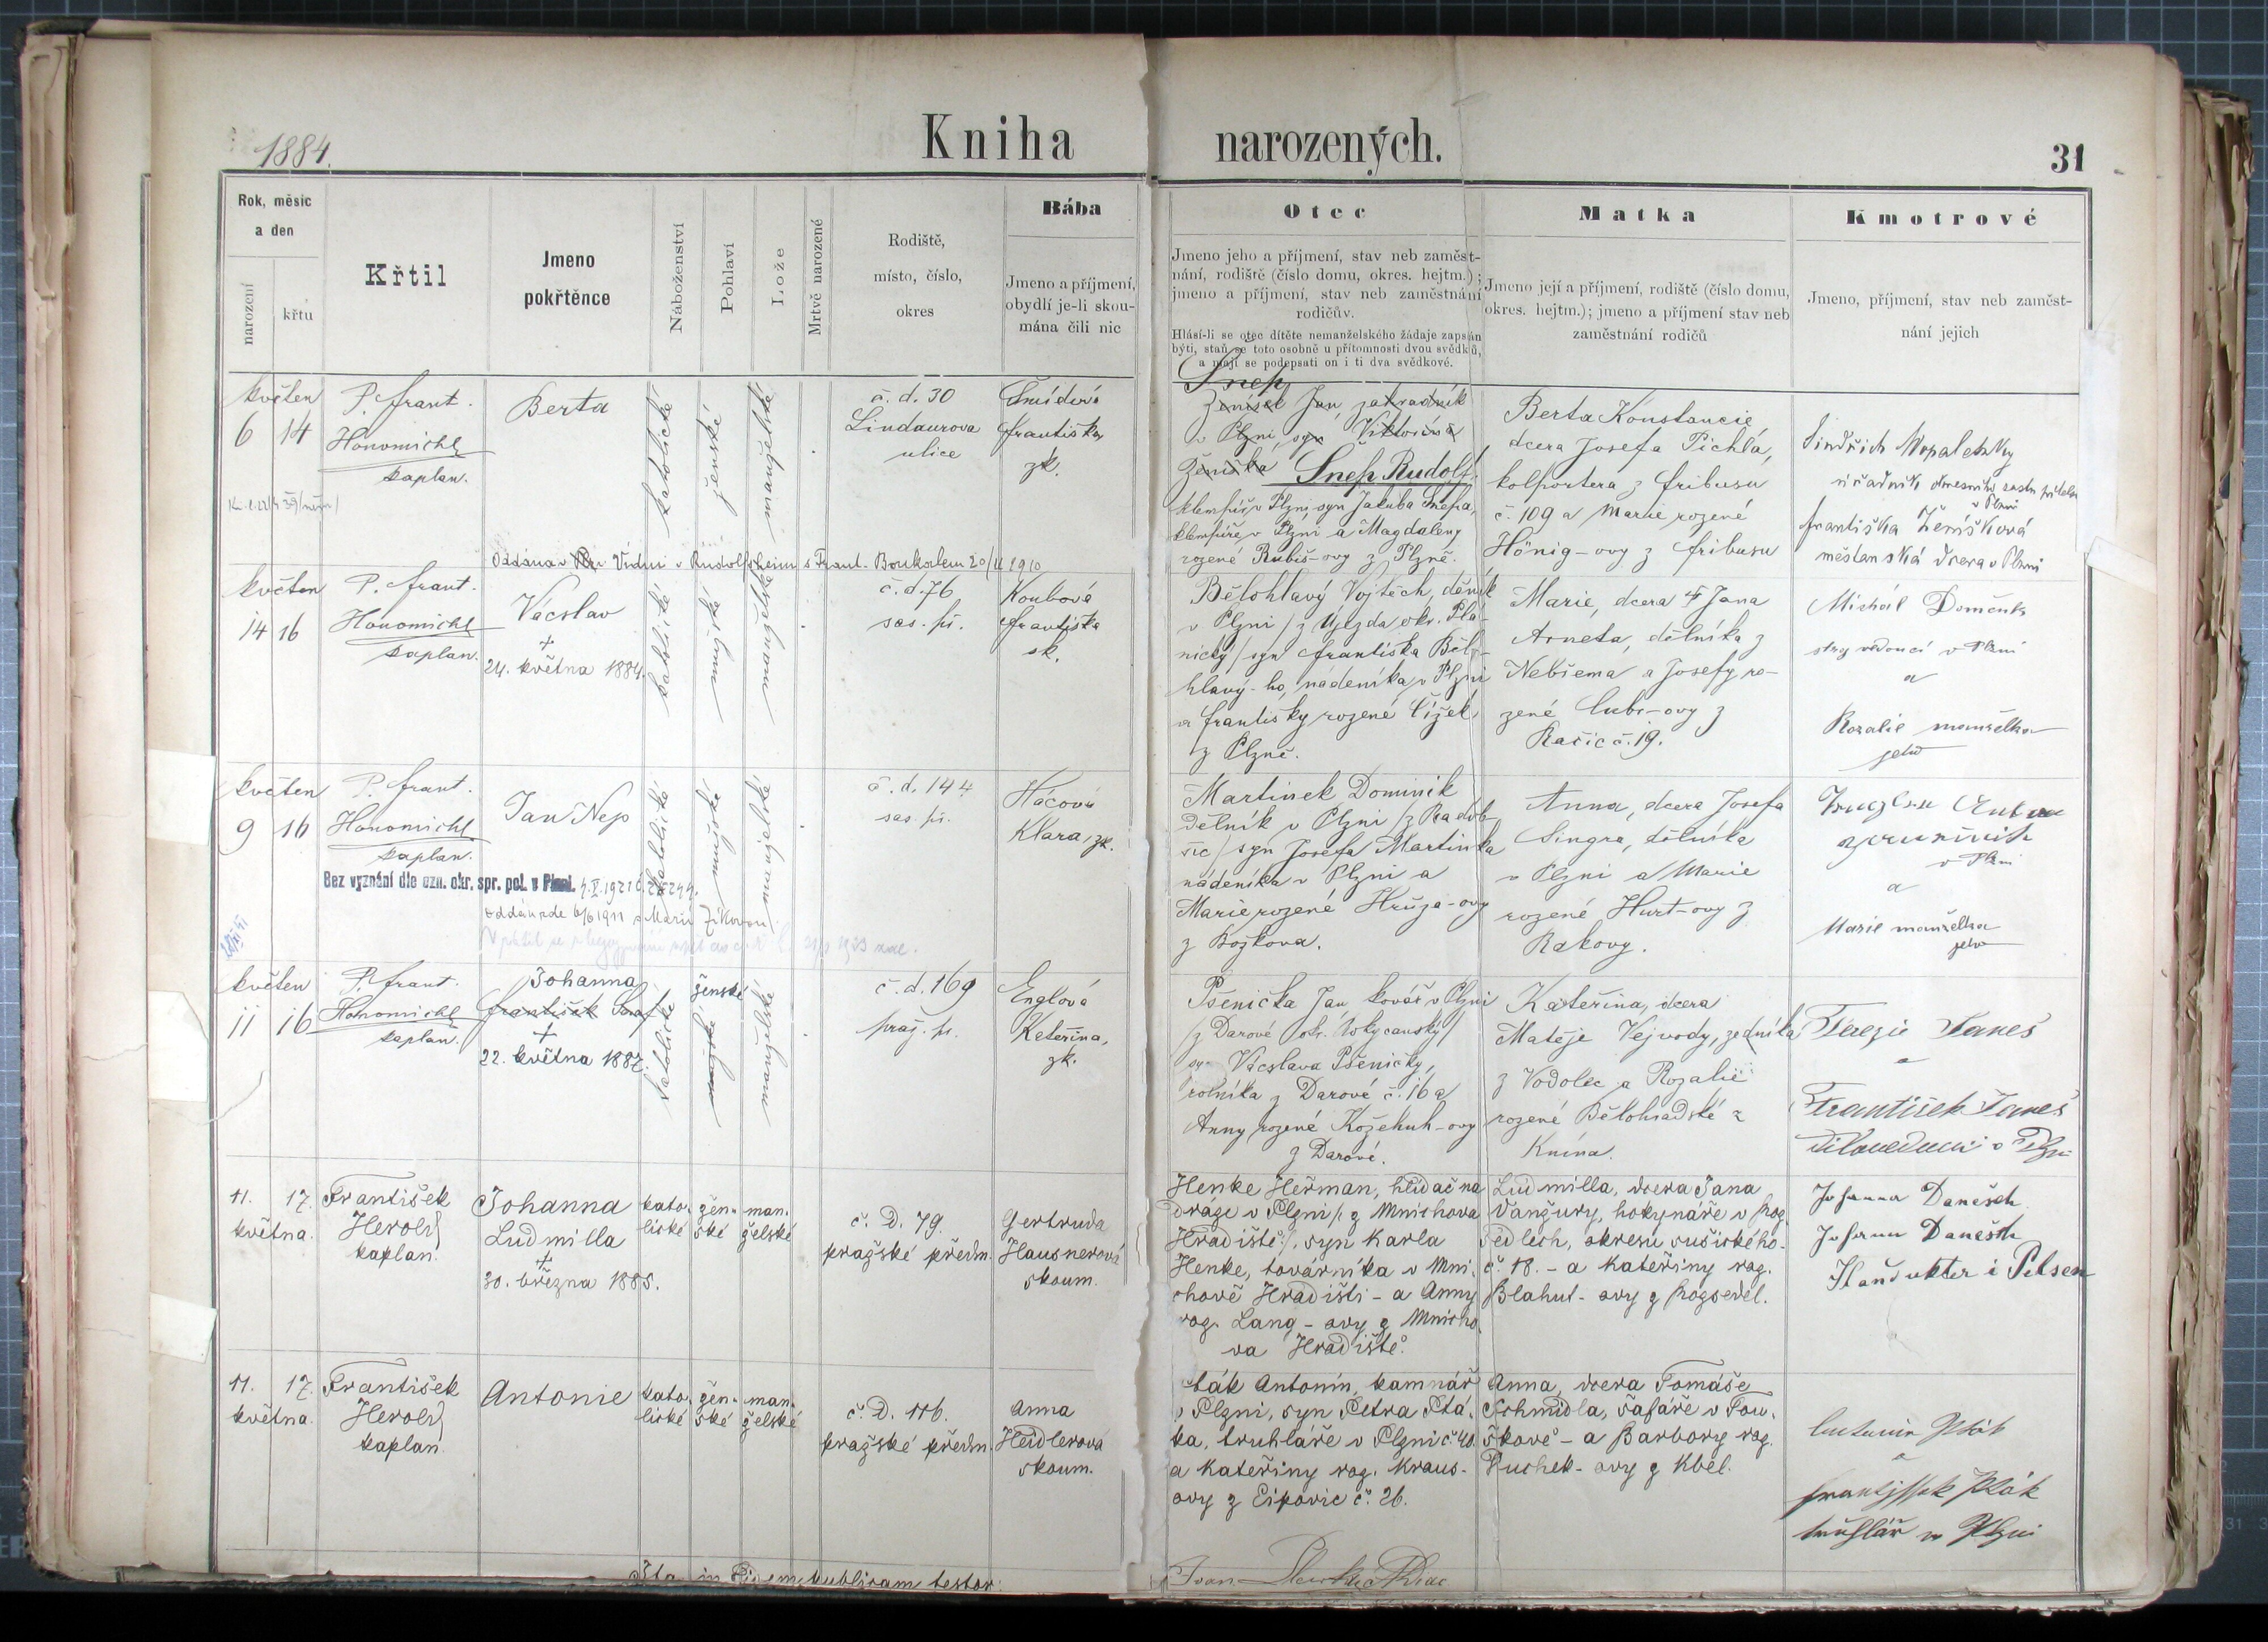 1884.
Kniha narozených.
31
Rok, měsíc
a den
narození
křtu
Křtil
Jmeno
pokřtěnce
Náboženství
Pohlaví
Lože
Mrtvě narozené
Rodiště,
místo, číslo,
okres
Bába
Jmeno a příjmení,
obydlí je-li skou-
mána čili nic
Otec
Jmeno jeho a příjmení, stav neb zaměst-
nání, rodiště (číslo domu, okres. hejtm.);
jmeno a příjmení, stav neb zaměstnání
rodičův.
Hlásí-li se otec dítěte nemanželského žádaje zapsán
býti, staň se toto osobně u přítomnosti dvou svědků,
a mají se podepsati on i ti dva svědkové.
Matka
Jmeno její a příjmení, rodiště (číslo domu,
okres. hejtm.); jmeno a příjmení stav neb
zaměstnání rodičů
Kmotrové
Jmeno, příjmení, stav neb zaměst-
nání jejich
květen
6 14
P. Frant.
Honomichl
kaplan.
Berta
katolické
ženské
manželské
č. d. 30
Lindaurova
ulice
Šmídová
Františka
zk.
Snep
Ženíšek Jan, zahradník
v Plzni, syn Viktorina
Ženíška Snep Rudolf,
klempíř v Plzni, syn Jakuba Snepa,
klempíře v Plzni a Magdaleny
rozené Rubiš-ovy z Plzně.
Berta Konstancie
dcera Josefa Pichla,
kolportera z Fribusu
č. 109 a Marie rozené
Hönig-ovy z Fribusu
Jindřich Nepaletzky
Františka Ženíšková
měšťanská dcera v Plzni
Oddána ve Vídni v Rudolfsheim s Frant. Boukalem 20/II 1910
květen
14 16
P. Frant.
Honomichl
kaplan.
Václav
+
24. května 1884.
katolické
mužské
manželské
č. d. 76
sas. př.
Koubová
Františka
sk.
Bělohlavý Vojtěch, děník
v Plzni / z Újezda okr. Pla-
nický / syn Františka Běl-
hlavý-ho, nadeníka v Plzni
a Františky rozené Čížek
z Plzně.
Marie, dcera † Jana
Arneta, dělníka z
Nebřema a Josefy ro-
zené Cubr-ovy z
Račic č. 19.
Michál
v Plzni
a
Rozalie manželka
jeho
květen
9 16
P. Frant.
Honomichl
kaplan.
Jan Nep
katolické
mužské
manželské
č. d. 144
sas. př.
Hácová
Klara, zk.
Martinek Dominik
dělník v Plzni / z Radob-
šic / syn Josefa Martinka
nádeníka v Plzni a
Marie rozené Hruza-ovy
z Božkova.
Anna, dcera Josefa
Singra, dělníka
v Plzni a Marie
rozené Hurt-ovy z
Rakovy.
v Plzni
a
Marie manželka
jeho
Bez vyznání dle ozn. okr. spr. pol. v Plzni.
oddán zde 6/6 1911 s Marií Zikovou
květen
11 16
P. Frant.
Honomichl
kaplan.
Johanna
František Seraf
+
22. května 1887.
katolické
ženské
mužské
manželské
č. d. 169
praž. př.
Englová
Kateřina,
zk.
Pšenička Jan, kovář v Plzni
/z Darové okr. Rokycanský/
syn Václava Pšeničky,
rolníka z Darové č. 16 a
Anny rozené Kožehuh-ovy
z Darové.
Kateřina, dcera
Matěje Vejvody, zedníka
z Vodolec a Rozalie
rozené Bělohradské z
Knína.
Terezie Janeš
a
František Janeš
dílovedoucí v Plzni
11. 17.
května.
František
Herold
kaplan.
Johanna
Ludmilla
+
30. března 1885.
kato-
lické
žen-
ské
man-
želské
č. D. 79.
pražské předm.
Gertruda
Hausnerová
skoum.
Henke Heřman, hlídač na
dráze v Plzni /: z Mnichova
Hradiště:/, syn Karla
Henke, továrníka v Mni-
chově Hradišti - a Anny
roz. Lang - ovy z Mnicho-
va Hradiště.
Ludmilla, dcera Jana
Vančury, hokynáře v Roz-
sedlech, okresu sušického
č. 18. - a Kateřiny roz.
Blahut - ovy z Rozsedel.
Johanna Danesch
Johann Danesch
Kondukter i Pilsen
11. 17.
května.
František
Herold
kaplan.
Antonie
kato-
lické
žen-
ské
man-
želské
č. D. 116.
pražské předm.
Anna
Heidlerová
skoum.
Pták Antonín, kamnář
v Plzni, syn Petra Ptá-
ka, truhláře v Plzni č. 40.
a Kateřiny roz. Kraus-
ovy z Ejpovic č. 26.
Anna, dcera Tomáše
Schmidla, šafáře v Tou-
škově - a Barbory roz.
Puchek - ovy z Kbel.
Antonín Pták
a
František Pták
truhlář v Plzni
Ita in fidem publicam testor: